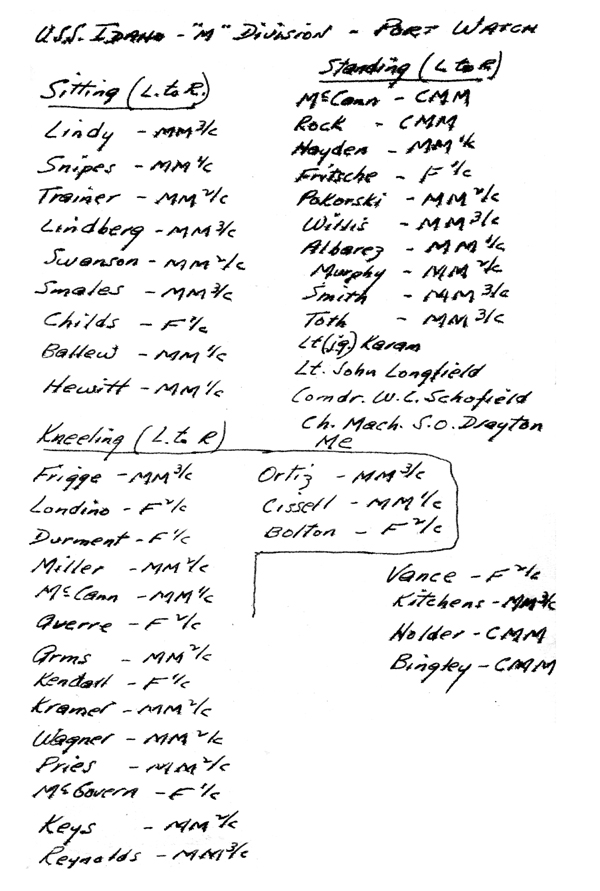 U.S.S. IDAHO - "M" DIVISION - PORT WATCH
Sitting (L. to R.)
Lindy - MM 3/c
Snipes - MM 1/c
Trainer - MM 2/c
Lindberg - MM 3/c
Swanson - MM 2/c
Smales - MM 3/c
Childs - F 1/c
Ballew - MM 1/c
Hewitt - MM 1/c
Standing (L to R)
McCann - CMM
Rock - CMM
Hayden - MM 1/c
Fritsche - F 1/c
Pokorski - MM 2/c
Willis - MM 3/c
Albarez - MM 1/c
Murphy - MM 2/c
Smith - MM 3/c
Toth - MM 3/c
Lt(jg.) Karam
Lt. John Longfield
Comdr. W.C. Schofield
Ch. Mach. S.O. Drayton
ME
Kneeling (L. to R)
Frigge - MM 3/c
Londino - F 2/c
Durment - F 1/c
Miller - MM 2/c
McCann - MM 1/c
Guerre - F 2/c
Arms - MM 2/c
Kendall - F 1/c
Kramer - MM 2/c
Wagner - MM 2/c
Pries - MM 2/c
McGovern - F 1/c
Keys - MM 2/c
Reynolds - MM 3/c
Ortiz - MM 3/c
Cissell - MM 1/c
Bolton - F 2/c
Vance - F 2/c
Kitchens - MM 3/c
Holder - CMM
Bingley - CMM